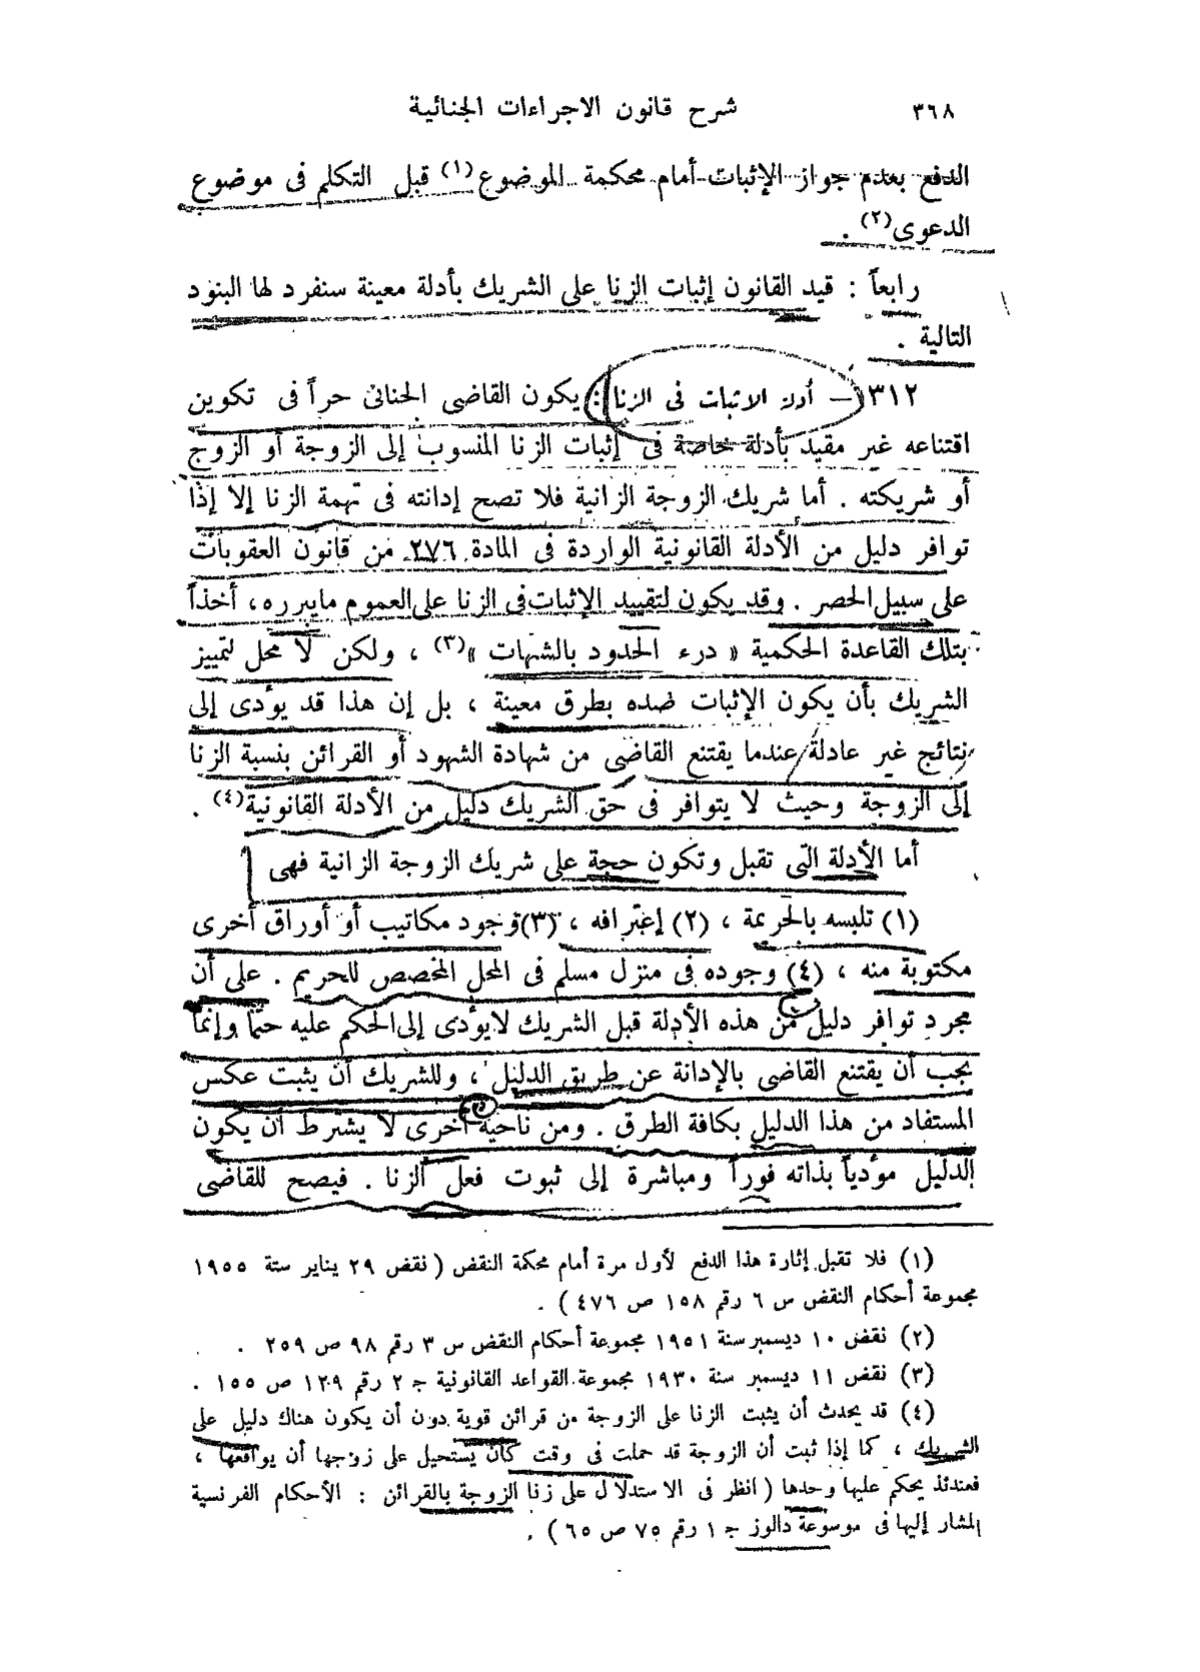 ٣٦٨ شرح قانون الاجراءات الجنائية
الدفع بعدم جواز الإثبات أمام محكمة الموضوع(١) قبل التكلم فى موضوع
الدعوى(٢) .
رابعاً : قيد القانون إثبات الزنا على الشريك بأدلة معينة سنفرد لها البنود
التالية .
٣١٢ – أدلة الاثبات فى الزنا : يكون القاضى الجنائى حراً فى تكوين
اقتناعه غير مقيد بأدلة خاصة فى إثبات الزنا المنسوب إلى الزوجة أو الزوج
أو شريكته . أما شريك الزوجة الزانية فلا تصح إدانته فى تهمة الزنا إلا إذا
توافر دليل من الأدلة القانونية الواردة فى المادة ٢٧٦ من قانون العقوبات
على سبيل الحصر . وقد يكون لتقييد الإثبات فى الزنا على العموم مايبرره ، أخذاً
بتلك القاعدة الحكمية « درء الحدود بالشبهات »(٣) ، ولكن لا محل لتمييز
الشريك بأن يكون الإثبات ضده بطرق معينة ، بل إن هذا قد يؤدى إلى
نتائج غير عادلة عندما يقتنع القاضى من شهادة الشهود أو القرائن بنسبة الزنا
إلى الزوجة وحيث لا يتوافر فى حق الشريك دليل من الأدلة القانونية(٤) .
أما الأدلة التى تقبل وتكون حجة على شريك الزوجة الزانية فهى
(١) تلبسه بالجريمة ، (٢) إعترافه ، (٣) وجود مكاتيب أو أوراق أخرى
مكتوبة منه ، (٤) وجوده فى منزل مسلم فى المحل المخصص للحريم . على أن
مجرد توافر دليل من هذه الأدلة قبل الشريك لايؤدى إلى الحكم عليه حتماً وإنما
يجب أن يقتنع القاضى بالإدانة عن طريق الدليل ، وللشريك أن يثبت عكس
المستفاد من هذا الدليل بكافة الطرق . ومن ناحية أخرى لا يشترط أن يكون
الدليل مؤدياً بذاته فوراً ومباشرة إلى ثبوت فعل الزنا . فيصح للقاضى
(١) فلا تقبل إثارة هذا الدفع لأول مرة أمام محكمة النقض ( نقض ٢٩ يناير سنة ١٩٥٥
مجموعة أحكام النقض س ٦ رقم ١٥٨ ص ٤٧٦ ) .
(٢) نقض ١٠ ديسمبر سنة ١٩٥١ مجموعة أحكام النقض س ٣ رقم ٩٨ ص ٢٥٩ .
(٣) نقض ١١ ديسمبر سنة ١٩٣٠ مجموعة القواعد القانونية ج ٢ رقم ١٢٩ ص ١٥٥ .
(٤) قد يحدث أن يثبت الزنا على الزوجة من قرائن قوية دون أن يكون هناك دليل على
الشريك ، كما إذا ثبت أن الزوجة قد حملت فى وقت كان يستحيل على زوجها أن يواقعها ،
فعندئذ يحكم عليها وحدها ( انظر فى الاستدلال على زنا الزوجة بالقرائن : الأحكام الفرنسية
المشار إليها فى موسوعة دالوز ج ١ رقم ٧٥ ص ٦٥ ) .